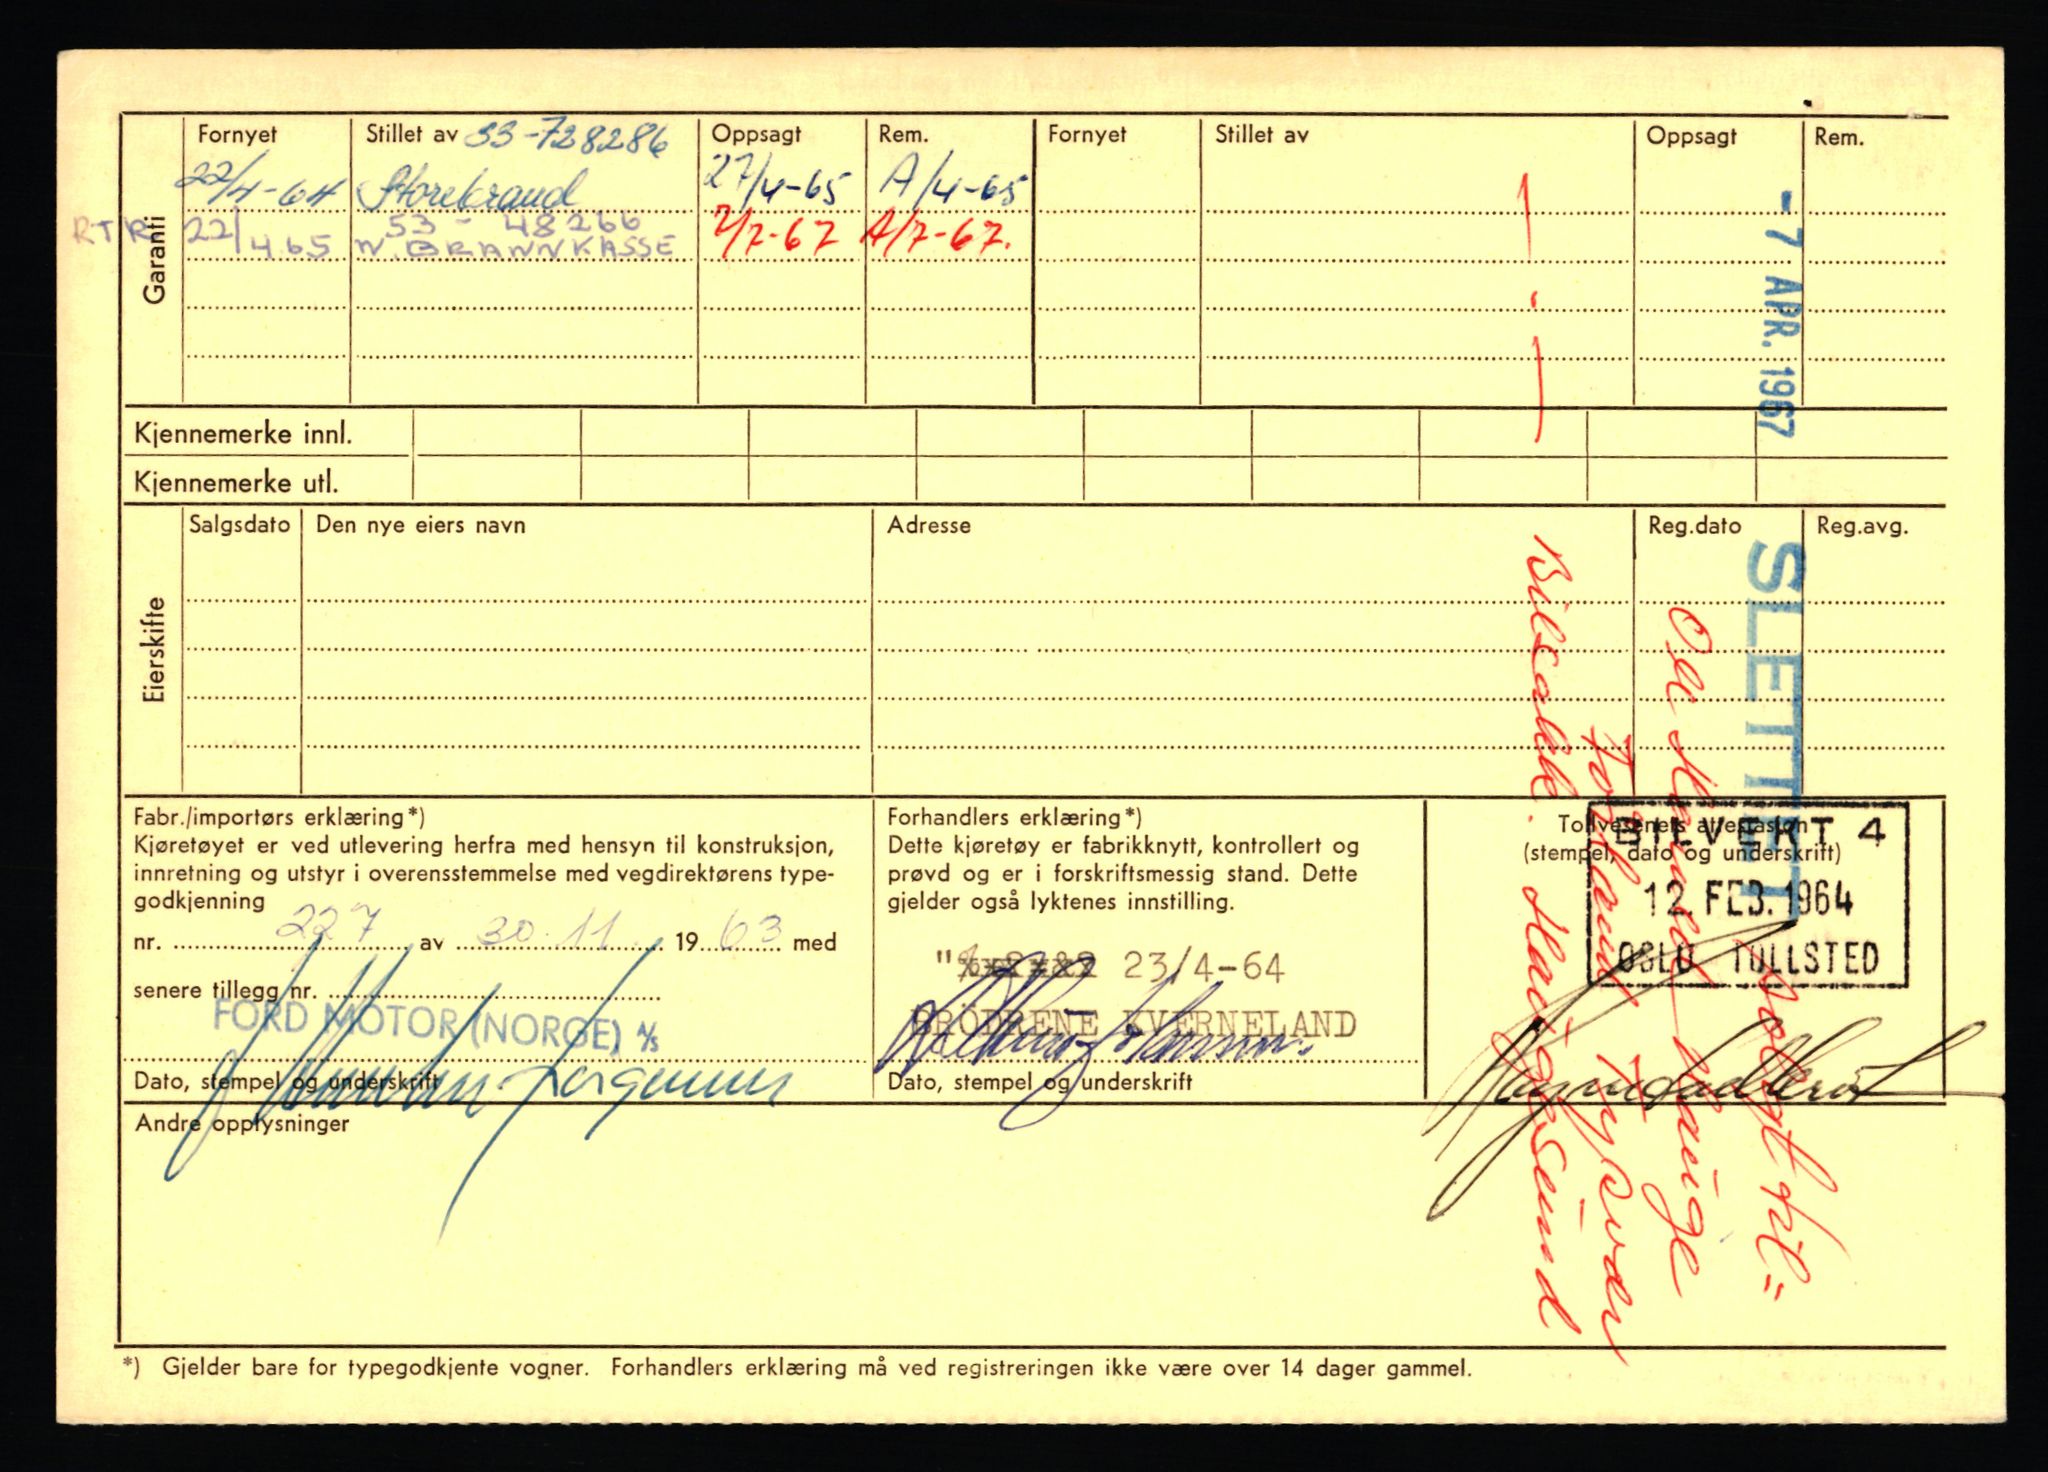 Garanti
Fornyet
Stillet av 53-728286
Oppsagt
Rem.
Fornyet
Stillet av
Oppsagt
Rem.
22/4-64 Storebrand 27/4-65 A/4-65
RTR 22/4 65 53-48266 N. BRANNKASSE 7/7-67 A/7-67.
- 7 APR. 1967
SLETTET
Kjennemerke innl.
Kjennemerke utl.
Eierskifte
Salgsdato
Den nye eiers navn
Adresse
Reg.dato
Reg.avg.
solgt til=
Hauge
Førland Tysvær
Bilsakk. Haugesund
Fabr./importørs erklæring*)
Kjøretøyet er ved utlevering herfra med hensyn til konstruksjon,
innretning og utstyr i overensstemmelse med vegdirektørens type-
godkjenning
nr. 227 av 30.11. 1963 med
senere tillegg nr.
FORD MOTOR (NORGE) A/S
Dato, stempel og underskrift
Forhandlers erklæring*)
Dette kjøretøy er fabrikknytt, kontrollert og
prøvd og er i forskriftsmessig stand. Dette
gjelder også lyktenes innstilling.
23/4-64
BRØDRENE KVERNELAND
Dato, stempel og underskrift
Tollvesenets attestasjon
(stempel, dato og underskrift)
BILVERT 4
12 FEB. 1964
OSLO TOLLSTED
Andre opplysninger
*) Gjelder bare for typegodkjente vogner. Forhandlers erklæring må ved registreringen ikke være over 14 dager gammel.